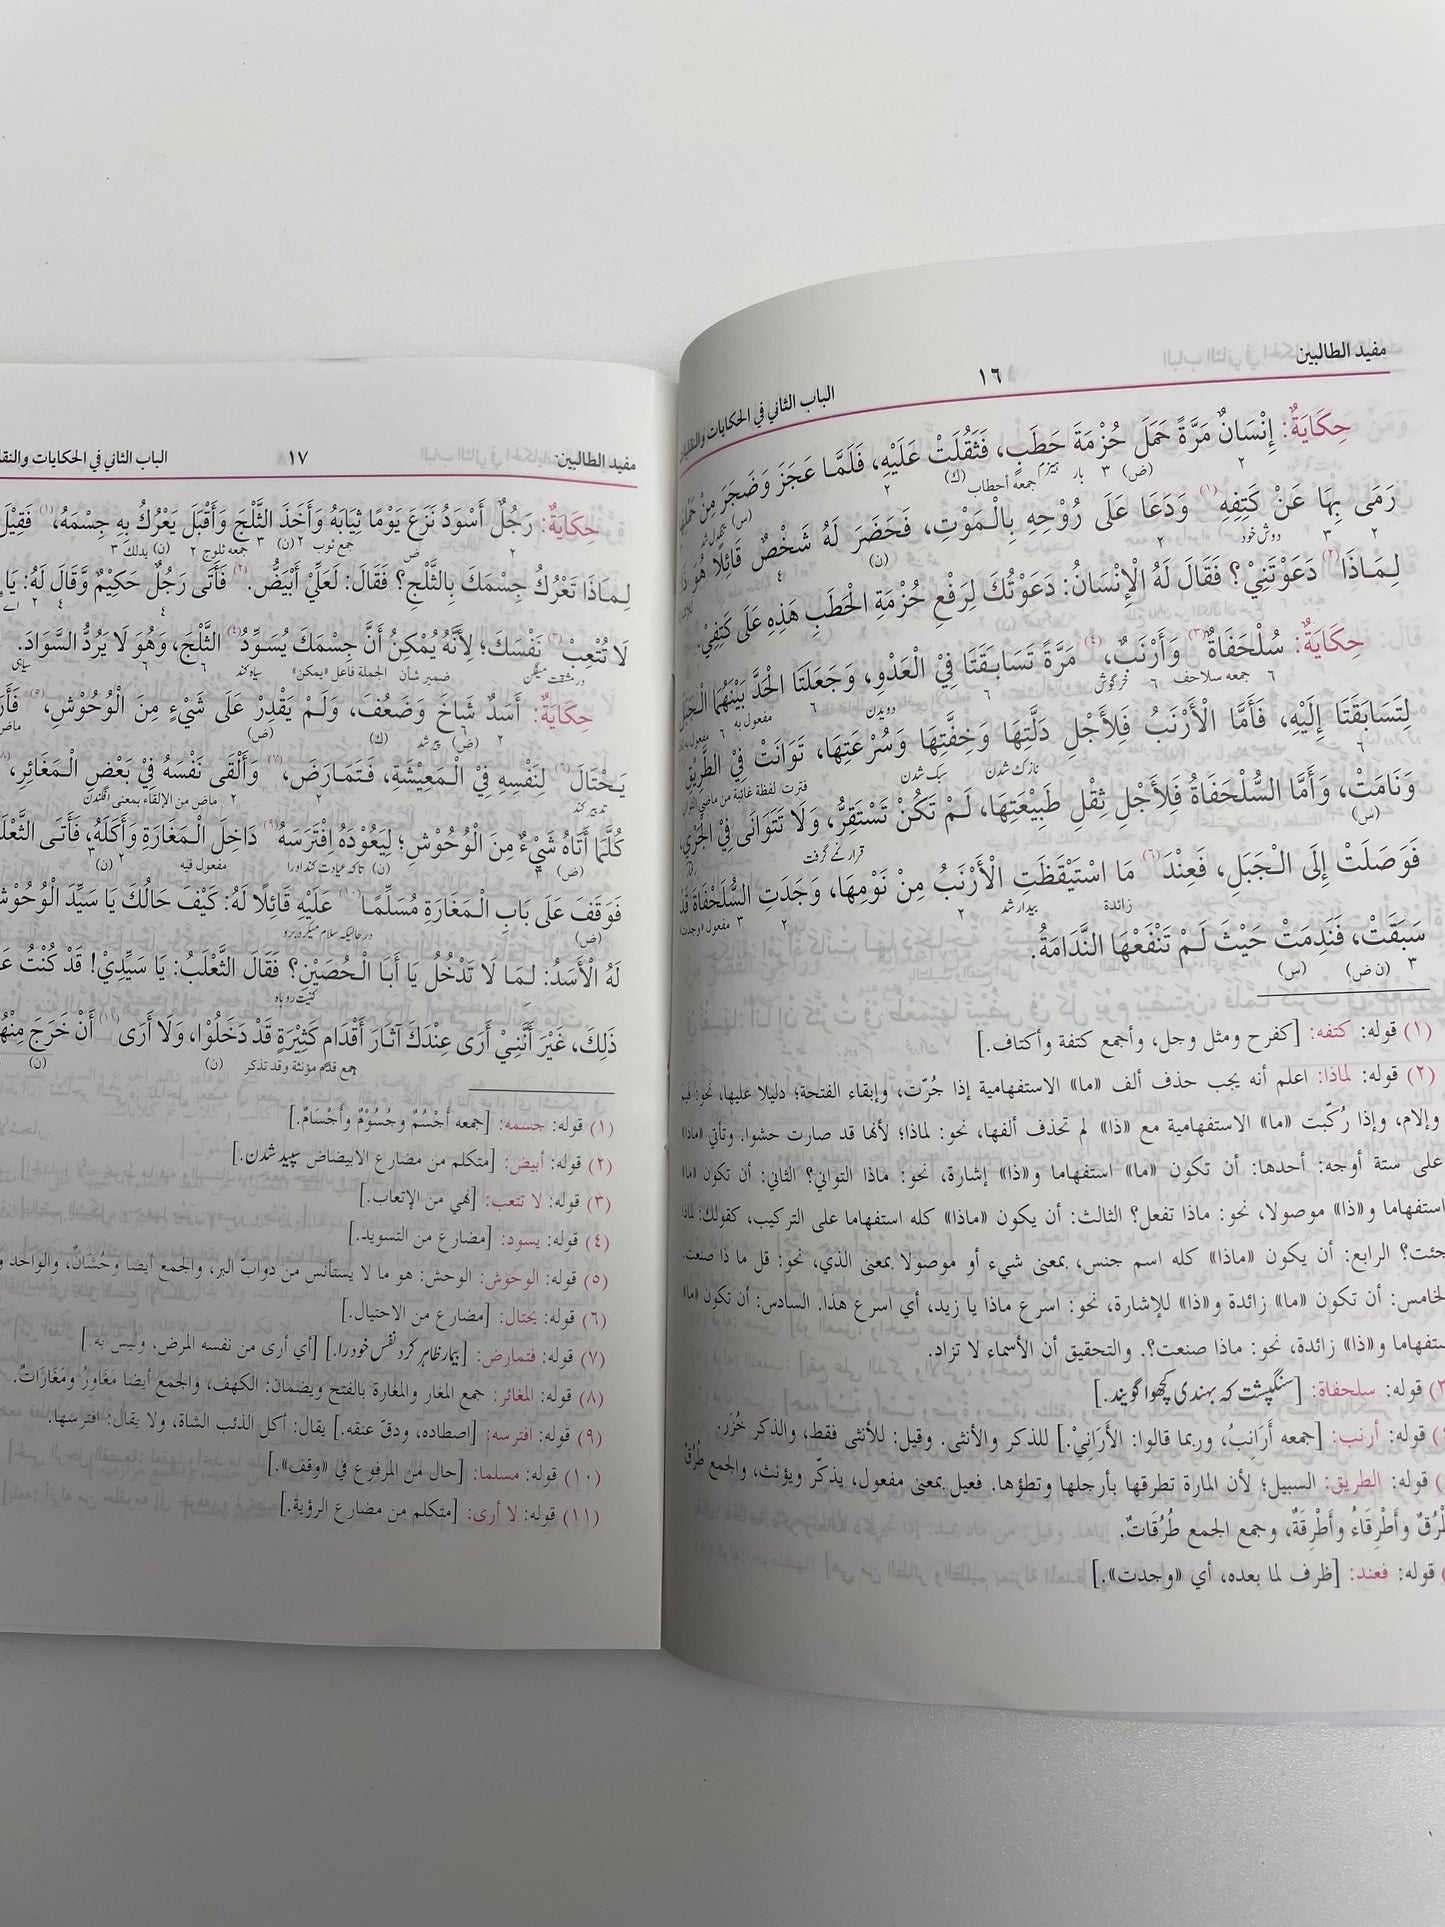 مفيد الطالبين ١٦ الباب الثاني في الحكايات والنقليات
حِكَايَةٌ: إِنْسَانٌ مَرَّةً حَمَلَ حُزْمَةَ حَطَبٍ، فَثَقُلَتْ عَلَيْهِ، فَلَمَّا عَجَزَ وَضَجَرَ مِنْ حَمْلِهَا
٢ (ض) ٣ بار هيزم جمعه أحطاب (ك) ٢ (س)
رَمَى بِهَا عَنْ كَتِفِهِ(١) وَدَعَا عَلَى رُوْحِهِ بِالْمَوْتِ، فَحَضَرَ لَهُ شَخْصٌ قَائِلًا هُوَ
٢ ٣ دوش خود ٢ (ن) ٤
لِمَاذَا(٢) دَعَوْتَنِيْ؟ فَقَالَ لَهُ الْإِنْسَانُ: دَعَوْتُكَ لِرَفْعِ حُزْمَةِ الْحَطَبِ هَذِهِ عَلَى كَتِفِيْ.
حِكَايَةٌ: سُلْحَفَاةٌ(٣) وَأَرْنَبٌ،(٤) مَرَّةً تَسَابَقَتَا فِيْ الْعَدْوِ، وَجَعَلَتَا الْحَدَّ بَيْنَهُمَا الْجَبَلَ
٦ جمعه سلاحف ٦ خرگوش ٦ دويدن ٦ مفعول به ٦
لِتَسَابَقَتَا إِلَيْهِ، فَأَمَّا الْأَرْنَبُ فَلِأَجْلِ دَلَّتِهَا وَخِفَّتِهَا وَسُرْعَتِهَا، تَوَانَتْ فِيْ الطَّرِيْقِ
٦ نازك شدن سبک شدن فترت لفظة غائبة من ماضي
وَنَامَتْ، وَأَمَّا السُّلْحَفَاةُ فَلِأَجْلِ ثِقْلِ طَبِيْعَتِهَا، لَمْ تَكُنْ تَسْتَقِرُّ، وَلَا تَتَوَانَى فِيْ الْجَرْيِ،
(س) قرار نمے گرفت
فَوَصَلَتْ إِلَى الْجَبَلِ، فَعِنْدَ(٦) مَا اسْتَيْقَظَتِ الْأَرْنَبُ مِنْ نَوْمِهَا، وَجَدَتِ السُّلْحَفَاةَ قَدْ
زائدة بيدار شد ٢ ٢ ٣ مفعول (وجدت)
سَبَقَتْ، فَنَدِمَتْ حَيْثَ لَمْ تَنْفَعْهَا النَّدَامَةُ.
٣ (ن ض) (س)
(١) قوله: كتفه: [كفرح ومثل وجل، وأجمع كتفة وأكتاف.]
(٢) قوله: لماذا: اعلم أنه يجب حذف ألف «ما» الاستفهامية إذا جُرّت، وإبقاء الفتحة؛ دليلا عليها، نحو: فيم
وإلام، وإذا رُكّبت «ما» الاستفهامية مع «ذا» لم تحذف ألفها، نحو: لماذا؛ لأنها قد صارت حشوا. وتأتي «ماذا»
على ستة أوجه: أحدها: أن تكون «ما» استفهاما و«ذا» إشارة، نحو: ماذا التواني؟ الثاني: أن تكون «ما»
استفهاما و«ذا» موصولا، نحو: ماذا تفعل؟ الثالث: أن يكون «ماذا» كله استفهاما على التركيب، كقولك: لماذا
جئت؟ الرابع: أن يكون «ماذا» كله اسم جنس، بمعنى شيء أو موصولا بمعنى الذي، نحو: قل ما ذا صنعت.
الخامس: أن تكون «ما» زائدة و«ذا» للإشارة، نحو: اسرع ماذا يا زيد، أي اسرع هذا. السادس: أن تكون «ما»
استفهاما و«ذا» زائدة، نحو: ماذا صنعت؟. والتحقيق أن الأسماء لا تزاد.
قوله: سلحفاة: [سنگپشت که بهندی کچھوا گویند.]
قوله: أرنب: [جمعه أَرَانِبُ، وربما قالوا: الأَرَانِيْ.] للذكر والأنثى. وقيل: للأنثى فقط، والذكر خُزَر.
قوله: الطريق: السبيل؛ لأن المارة تطرقها بأرجلها وتطؤها. فعيل بمعنى مفعول، يذكّر ويؤنث، والجمع طُرُقٌ
طْرُقٌ وأَطْرِقَاءُ وأَطْرِقَةٌ، وجمع الجمع طُرُقَاتٌ.
قوله: فعند: [ظرف لما بعده، أي «وجدت».]
مفيد الطالبين ١٧ الباب الثاني في الحكايات والنقل
حِكَايَةٌ: رَجُلٌ أَسْوَدُ نَزَعَ يَوْمًا ثِيَابَهُ وَأَخَذَ الثَّلْجَ وَأَقْبَلَ يَعْرُكُ بِهِ جِسْمَهُ،(١) فَقِيْلَ
٢ ض جمع ثوب ٢ (ن) ٣ جمعه ثلوج ٢ (ن) يدلك ٣
لِمَاذَا تَعْرُكُ جِسْمَكَ بِالثَّلْجِ؟ فَقَالَ: لَعَلِّي أَبْيَضُّ.(٢) فَأَتَى رَجُلٌ حَكِيْمٌ وَّقَالَ لَهُ: يَا
٤ ٤ ٢ اے
لَا تُتْعِبْ(٣) نَفْسَكَ؛ لِأَنَّهُ يُمْكِنُ أَنَّ جِسْمَكَ يُسَوِّدُ(٤) الثَّلْجَ، وَهُوَ لَا يَرُدُّ السَّوَادَ.
در مشقت میفگن ضمير شأن الجملة فاعل «يمكن» سیاه کند ٦ ٦ سیاہی
حِكَايَةٌ: أَسَدٌ شَاخَ وَضَعُفَ، وَلَمْ يَقْدِرْ عَلَى شَيْءٍ مِنَ الْوُحُوْشِ،(٥)
٢ (ض) پیر شد (ك) (ض)
يَحْتَالَ(٦) لِنَفْسِهِ فِيْ الْمَعِيْشَةِ، فَتَمَارَضَ،(٧) وَأَلْقَى نَفْسَهُ فِيْ بَعْضِ الْمَغَائِرِ،(٨)
تدبیر کند ٢ ٢ ماض من الإلقاء بمعنى افگندن
كُلَّمَا أَتَاهُ شَيْءٌ مِنَ الْوُحُوْشِ؛ لِيَعُوْدَهُ اِفْتَرَسَهُ(٩) دَاخِلَ الْمَغَارَةِ وَأَكَلَهُ، فَأَتَى الثَّعْلَبُ
(ض) ٣ (ن) تاکہ عیادت کند اورا مفعول فيه ٢ (ن)
فَوَقَفَ عَلَى بَابِ الْمَغَارَةِ مُسَلِّمًا(١٠) عَلَيْهِ قَائِلًا لَهُ: كَيْفَ حَالُكَ يَا سَيِّدَ الْوُحُوْشِ
(ض) در حالیکہ سلام میکرد برو
لَهُ الْأَسَدُ: لِمَا لَا تَدْخُلُ يَا أَبَا الْحُصَيْنِ؟ فَقَالَ الثَّعْلَبُ: يَا سَيِّدِيْ! قَدْ كُنْتُ
کنیت روباه
ذَلِكَ، غَيْرَ أَنَّنِيْ أَرَى عِنْدَكَ آثَارَ أَقْدَامٍ كَثِيْرَةٍ قَدْ دَخَلُوْا، وَلَا أَرَى(١١) أَنْ خَرَجَ مِنْهُ
جمع قدم مؤنثة وقد تذكر (ن) (ن)
(١) قوله: جسمه: [جمعه أَجْسُمٌ وجُسُوْمٌ وأَجْسَامٌ.]
(٢) قوله: أبيض: [متكلم من مضارع الابيضاض سپید شدن.]
(٣) قوله: لا تتعب: [نهي من الإتعاب.]
(٤) قوله: يسود: [مضارع من التسويد.]
(٥) قوله: الوحوش: الوحش: هو ما لا يستأنس من دوابّ البر، والجمع أيضا وحُشَانٌ، والواحد
(٦) قوله: يحتال: [مضارع من الاحتيال.]
(٧) قوله: فتمارض: [بیمار ظاہر کرد نفس خود را.] [أي أرى من نفسه المرض، وليس به.]
(٨) قوله: المغائر: جمع المغار والمغارة بالفتح ويضمان: الكهف، والجمع أيضا مَغَاوِرُ ومَغَارَاتٌ.
(٩) قوله: افترسه: [اصطاده، ودقّ عنقه.] يقال: أكل الذئب الشاة، ولا يقال: افترسها.
(١٠) قوله: مسلما: [حال من المرفوع في «وقف».]
(١١) قوله: لا أرى: [متكلم من مضارع الرؤية.]